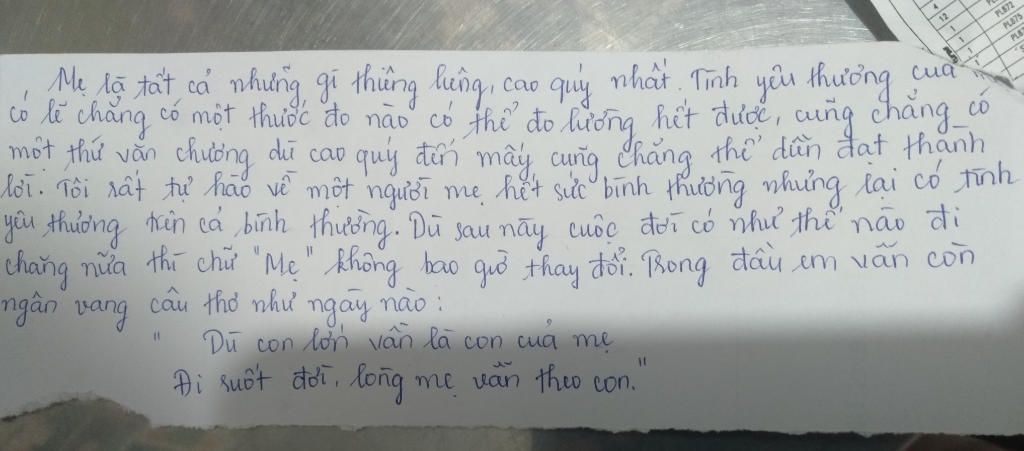 Mẹ là tất cả những gì thiêng liêng, cao quý nhất. Tình yêu thương của
có lẽ chẳng có một thước đo nào có thể đo lường hết được, cũng chẳng có
một thứ văn chương dù cao quý đến mấy cũng chẳng thể dẫn đạt thành
lời. Tôi rất tự hào về một người mẹ hết sức bình thường nhưng lại có tình
yêu thương trên cả bình thường. Dù sau này cuộc đời có như thế nào đi
chăng nữa thì chữ "Mẹ" không bao giờ thay đổi. Trong đầu em vẫn còn
ngân vang câu thơ như ngày nào:
" Dù con lớn vẫn là con của mẹ
Đi suốt đời, lòng mẹ vẫn theo con."
4
12
1
1
PL872
PL875